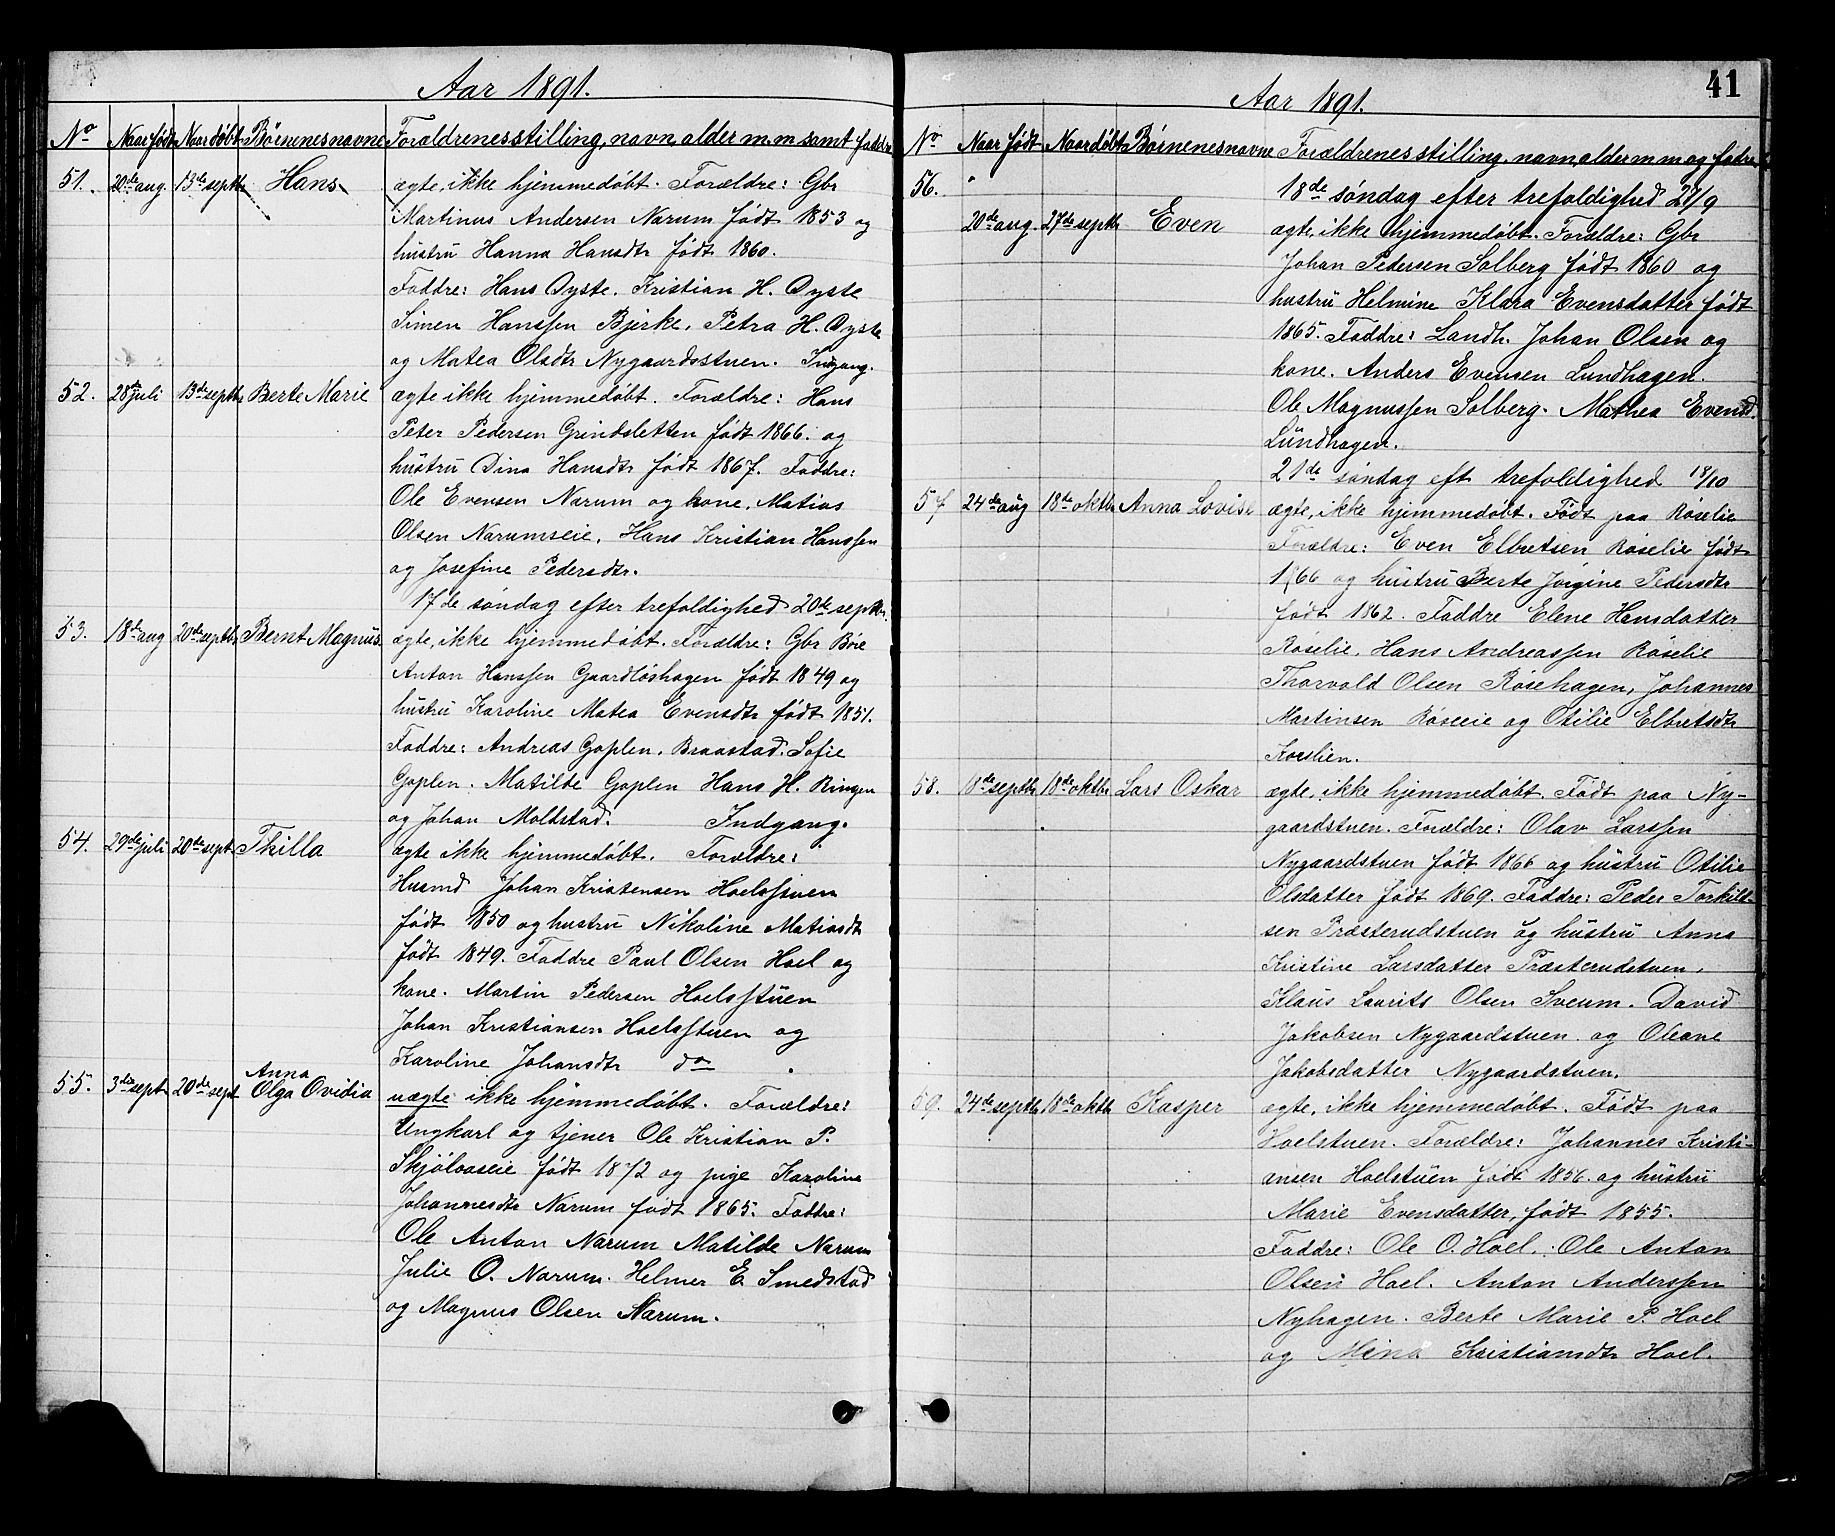 Aar 1891.
No Naar født Naar døbt Börnenes navne Forældrenes stilling, navn, alder m.m samt faddre
51. 20de aug. 13de septbr Hans ægte, ikke hjemmedøbt. Forældre: Gbr
Martinus Andersen Narum født 1853 og
hustru Hanna Hansdtr født 1860.
Faddre: Hans Øyste. Kristian H. Øyste
Simen Hanssen Bjerke, Petra H. Øyste
og Matea Olsdtr Nygaardsstuen. Indgang.
52. 28de juli 13de septbr Berte Marie ægte ikke hjemmedøbt. Forældre: Hans
Peter Pedersen Grindsletten født 1866. og
hustru Dina Hansdtr født 1867. Faddre:
Ole Evensen Narum og kone, Matias
Olsen Narumseie, Hans Kristian Hanssen
og Josefine Pedersdtr.
17de søndag efter trefoldighed 20de septbr.
53. 18de aug 20de septbr Bernt Magnus. ægte, ikke hjemmedøbt. Forældre: Gbr Böie
Anton Hanssen Gaardløshagen født 1849 og
hustru Karoline Matea Evensdtr født 1851.
Faddre: Andreas Goplen. Braastad. Sofie
Goplen. Matilde Goplen Hans H. Ringen
og Johan Moldstad. Indgang.
54. 29de juli 20de sept. Thilla ægte ikke hjemmedøbt. Forældre:
Husmd Johan Kristensen Hoelsstuen
født 1850 og hustru Nikoline Matiasdt
født 1849. Faddre Paul Olsen Hoel og
kone. Martin Pedersen Hoelsstuen
Johan Kristiansen Hoelsstuen og
Karoline Johansdtr do
Anna
55. 3die sept 20de sept Olga Ovidia uægte ikke hjemmedøbt. Forældre:
Ungkarl og tjener Ole Kristian P.
Skjölaaseie født 1872 og pige Karoline
Johannesdtr Narum født 1865. Faddre:
Ole Anton Narum Matilde Narum
Julie O. Narum. Helmer E. Smedstad
og Magnus Olsen Narum.
41
Aar 1891.
No Naar født Naar døbt Börnenes navne Forældrenes stilling, navn, alder m.m og fadre
56. 18de søndag efter trefoldighed 27/9
20de aug. 27de septbr Even ægte, ikke hjemmedøbt. Forældre: Gbr
Johan Pedersen Solberg født 1860 og
hustru Helmine Klara Evensdatter født
1865. Faddre: Landh. Johan Olsen og
kone. Anders Evensen Lundhagen.
Ole Magnussen Solberg. Mathea Evensd.
Lundhagen.
21de søndag eft trefoldighed 18/10
57 24de aug 18de oktbr Anna Lovise ægte, ikke hjemmedøbt. Født paa Röselie
Forældre: Even Elbretsen Röselie født
1866 og hustru Berte Jörgine Pedersdtr
født 1862. Faddre Elene Hansdatter
Röselie. Hans Andreassen Röselie
Thorvald Olsen Rösehagen, Johannes
Martinsen Röseeie og Otilie Elbretsdtr
Korslien.
58. 8de septbr 18de oktbr Lars Oskar ægte, ikke hjemmedøbt. Født paa Ny-
gaardstuen. Forældre: Olav Larssen
Nygaardstuen født 1866 og hustru Otilie
Olsdatter født 1869. Faddre: Peder Torkild-
sen Præsterudstuen og hustru Anna
Kristine Larsdatter Præsterudstuen,
Klaus Laurits Olsen Sveum. David
Jakobsen Nygaardstuen. og Oleane
Jakobsdatter Nygaardstuen.
59. 24de septbr 18de oktbr Kasper ægte, ikke hjemmedøbt. Født paa
Hoelstuen. Forældre: Johannes Kristi-
ansen Hoelstuen født 1856. og hustru
Marie Evensdatter, født 1855.
Faddre: Ole O. Hoel. Ole Anton
Olsen Hoel. Anton Anderssen
Nyhagen. Berte Marie P. Hoel
og Mina Kristiansdtr Hoel.